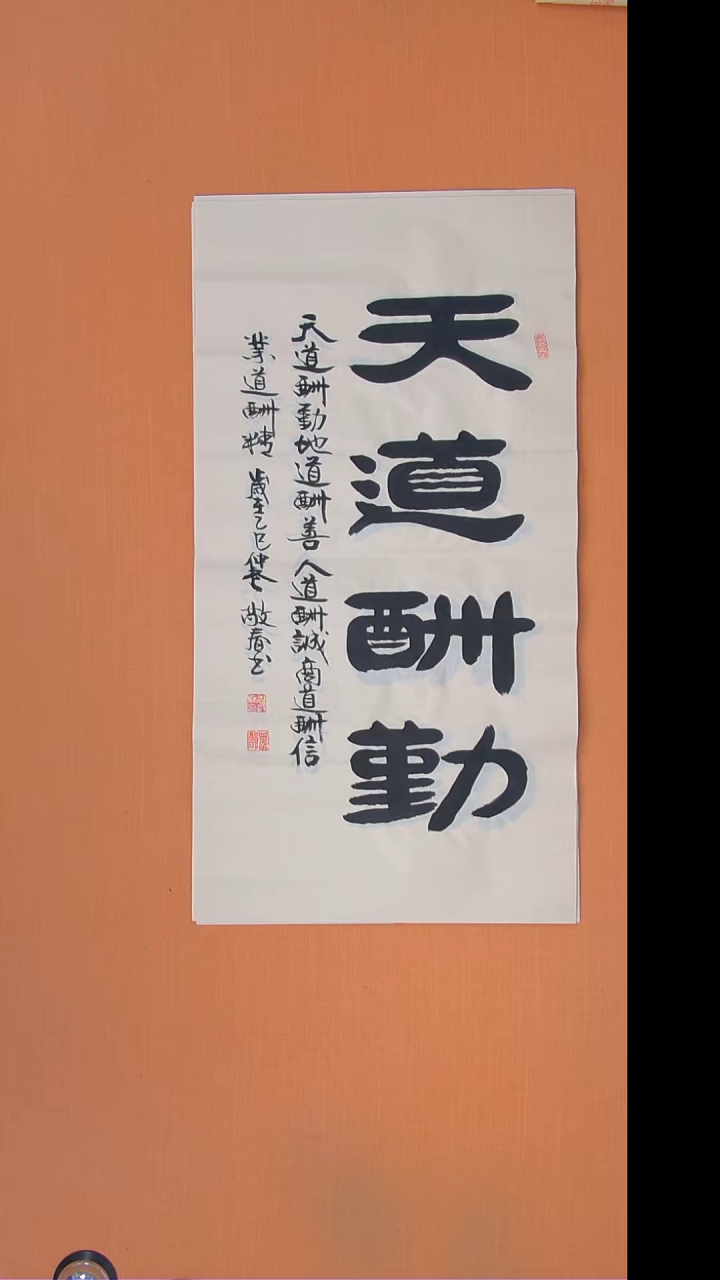 天道酬勤
天道酬勤地道酬善人道酬誠商道酬信
業道酬精 歲在乙巳仲春 敬春书